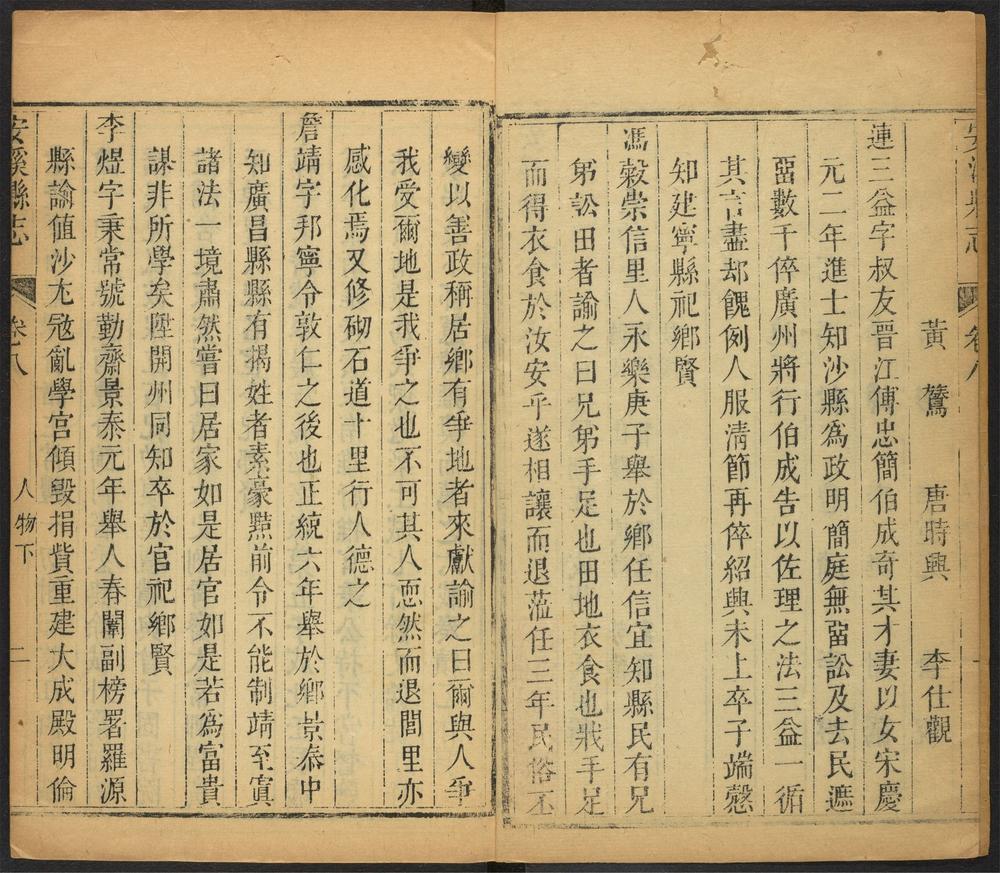 安溪縣志 卷八
黃鷟 唐時興 李仕觀
連三益字叔友晉江傅忠簡伯成奇其才妻以女宋慶
元二年進士知沙縣為政明簡庭無留訟及去民遮
留數千倅廣州將行伯成告以佐理之法三益一循
其言盡却餽例人服清節再倅紹興未上卒子端愨
知建寧縣祀鄉賢
馮榖崇信里人永樂庚子舉於鄉任信宜知縣民有兄
弟訟田者諭之曰兄弟手足也田地衣食也戕手足
而得衣食於汝安乎遂相讓而退蒞任三年民俗丕
變以善政稱居鄉有爭地者來獻諭之曰爾與人爭
我受爾地是我爭之也不可其人恧然而退閭里亦
感化焉又修砌石道十里行人德之
詹靖字邦寧令敦仁之後也正統六年舉於鄉景泰中
知廣昌縣縣有揭姓者素豪黠前令不能制靖至寘
諸法一境肅然嘗曰居家如是居官如是若為富貴
謀非所學矣陞開州同知卒於官祀鄉賢
李煜字秉常號勤齋景泰元年舉人春闈副榜署羅源
縣諭值沙尤寇亂學宮傾毀捐貲重建大成殿明倫
安溪縣志 卷八 人物下 二